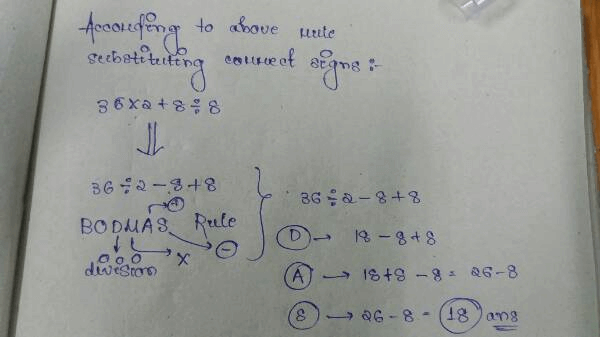 According to above rule
substituting correct signs :-
36×2+8÷8
⇓
36÷2-8+8
BODMAS Rule
+
-
×
division
36÷2-8+8
D → 18-8+8
A → 18+8-8=26-8
S → 26-8=18 ans